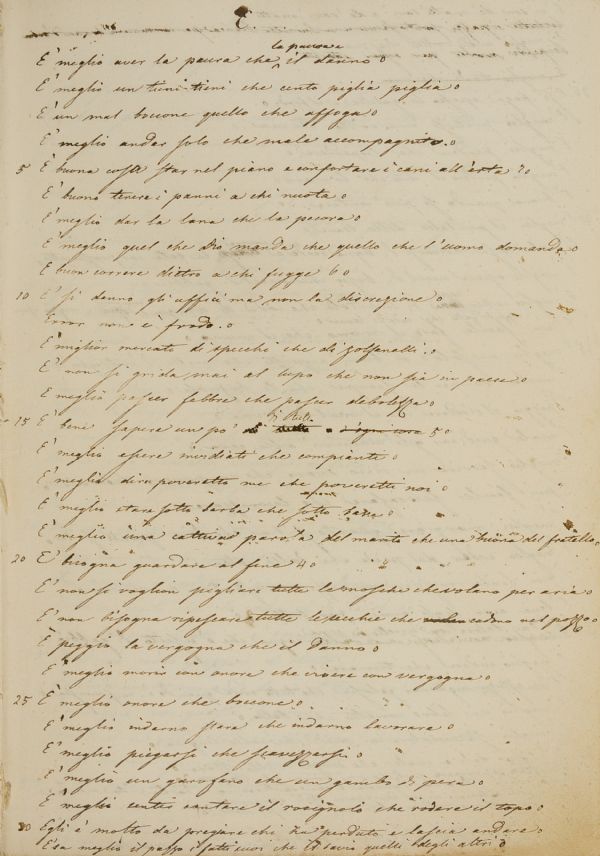 E.
la paura e
E' meglio aver la paura che il danno
E' meglio un tieni-tieni che cento piglia piglia
E' un mal boccone quello che affoga
E' meglio andar solo che male accompagnato.
5 E' buona cosa star nel piano e confortare i cani all'erta
E' buono tenere i panni a chi nuota
E' meglio dar la lana che la pecora
E' meglio quel che Dio manda che quello che l'uomo domanda
E' buon correre dietro a chi fugge 6
10 E' si danno gli uffici ma non la discrezione
Error non è frodo.
E' miglior mercato di specchi che di zolfanelli.
E' non si grida mai al lupo che non sia in paese
E' meglio pascer febbre che pascer debolezza
di tutto
15 E' bene sapere un po' d'ogni cosa 5
E' meglio essere invidiati che compianti
E' meglio dire poveretto me che poveretti noi
E' meglio stare sotto barba che sotto bava
E' meglio una cattiva parola del marito che una buona del fratello
20 E' bisogna guardare al fine 4
E' non si voglion pigliare tutte le mosche che volano per aria
E' non bisogna ripescare tutte le secchie che cadono nel pozzo
È peggio la vergogna che il danno
E' meglio morir con onore che vivere con vergogna
25 E' meglio onore che boccone
E' meglio indarno stare che indarno lavorare
E' meglio piegarsi che scavezzarsi
E' meglio un garofano che un gambo di pera
E' meglio sentir cantare il rosignolo che rodere il topo
30 Egli è molto da pregiare chi ha perduto e lascia andare
E' sa meglio il passo i fatti suoi che il savio quelli degli altri